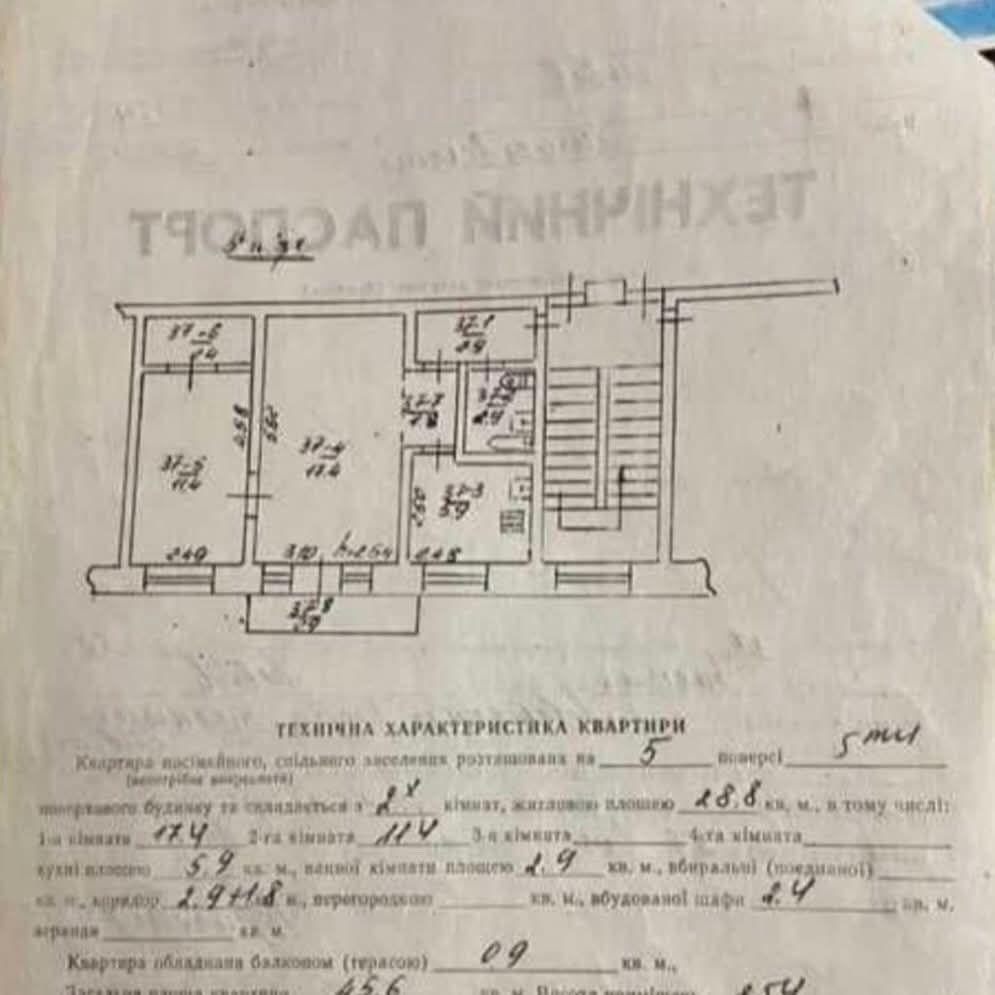 ТЕХНІЧНИЙ ПАСПОРТ
37-6
2.4
37-1
2.9
37-7
1.8
37-2
2.9
4.58
5.60
37-4
17.4
37-5
11.4
37-3
5.9
2.49
3.10 h=2.54
2.48
37-8
0.9
ТЕХНІЧНА ХАРАКТЕРИСТИКА КВАРТИРИ
Квартира посімейного, спільного заселення розташована на 5 поверсі 5 ти
(непотрібне викреслити)
поверхового будинку та складається з 2х кімнат, житловою площею 28.8 кв. м., в тому числі:
1-а кімната 17.4 2-га кімната 11.4 3-я кімната 4-та кімната
кухні площею 5.9 кв. м., ванної кімнати площею 2.9 кв. м., вбиральні (поєднаної)
кв. м., коридор 2.9+1.8 м., перегородкою кв. м., вбудованої шафи 2.4 кв. м.
веранди кв. м.
Квартира обладнана балконом (терасою) 0.9 кв. м.,
Загальна площа квартири 45.6 кв. м. Висота приміщень 2.54